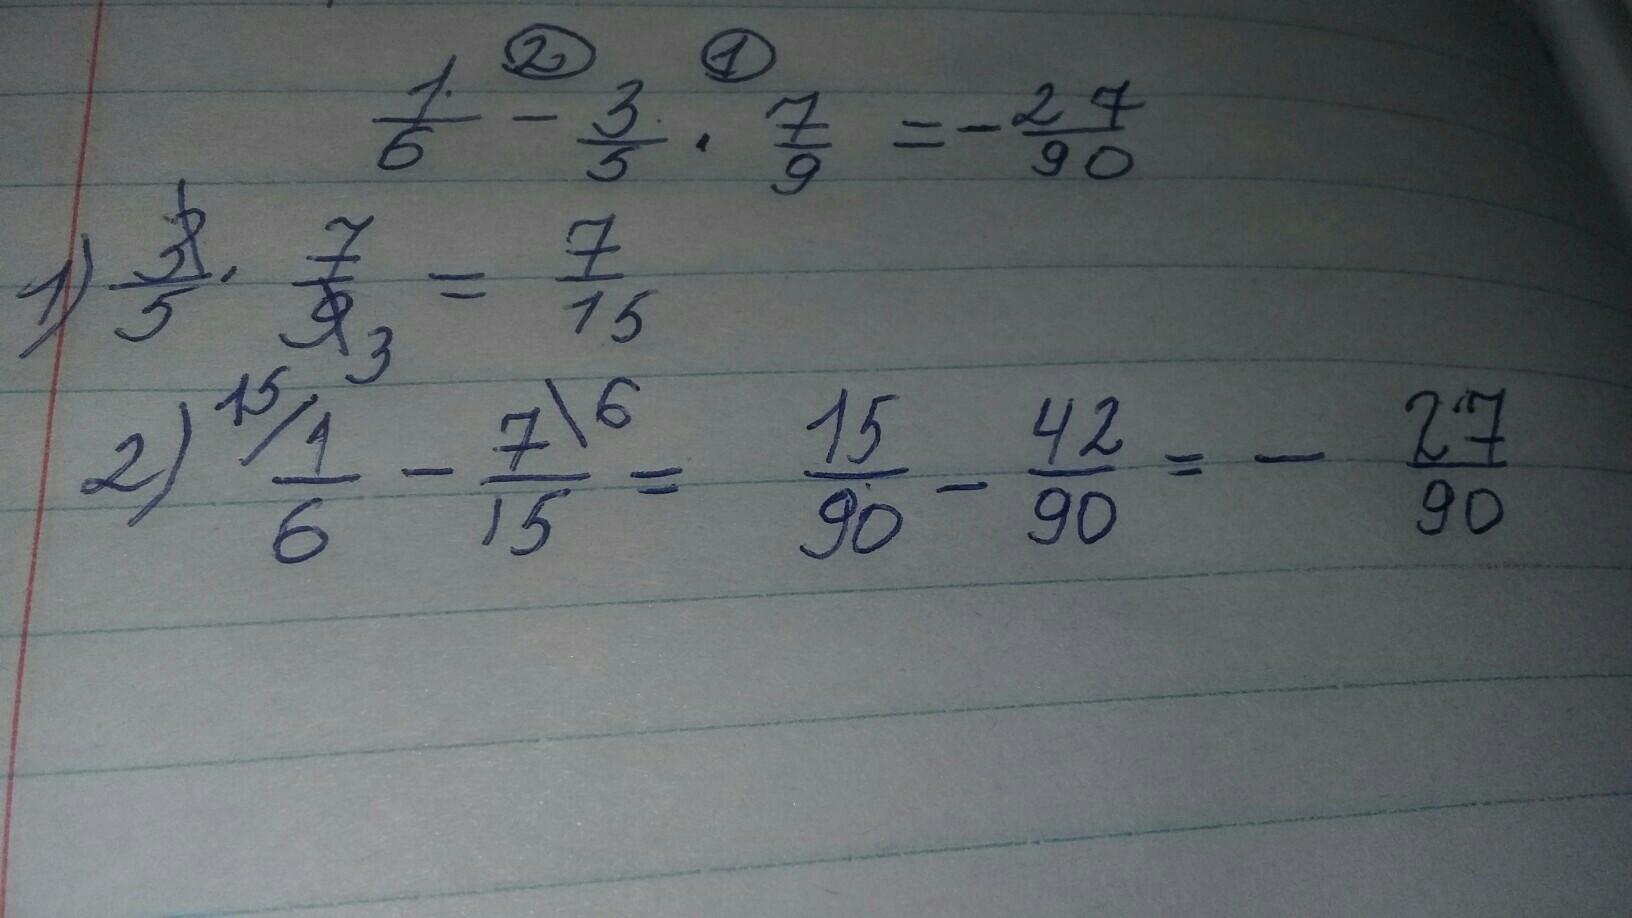 ② ①
1/6 - 3/5 · 7/9 = - 27/90
1) 3/5 · 7/9 = 7/15
1 3
2) 15/ 1/6 - 7/15 \6 = 15/90 - 42/90 = - 27/90